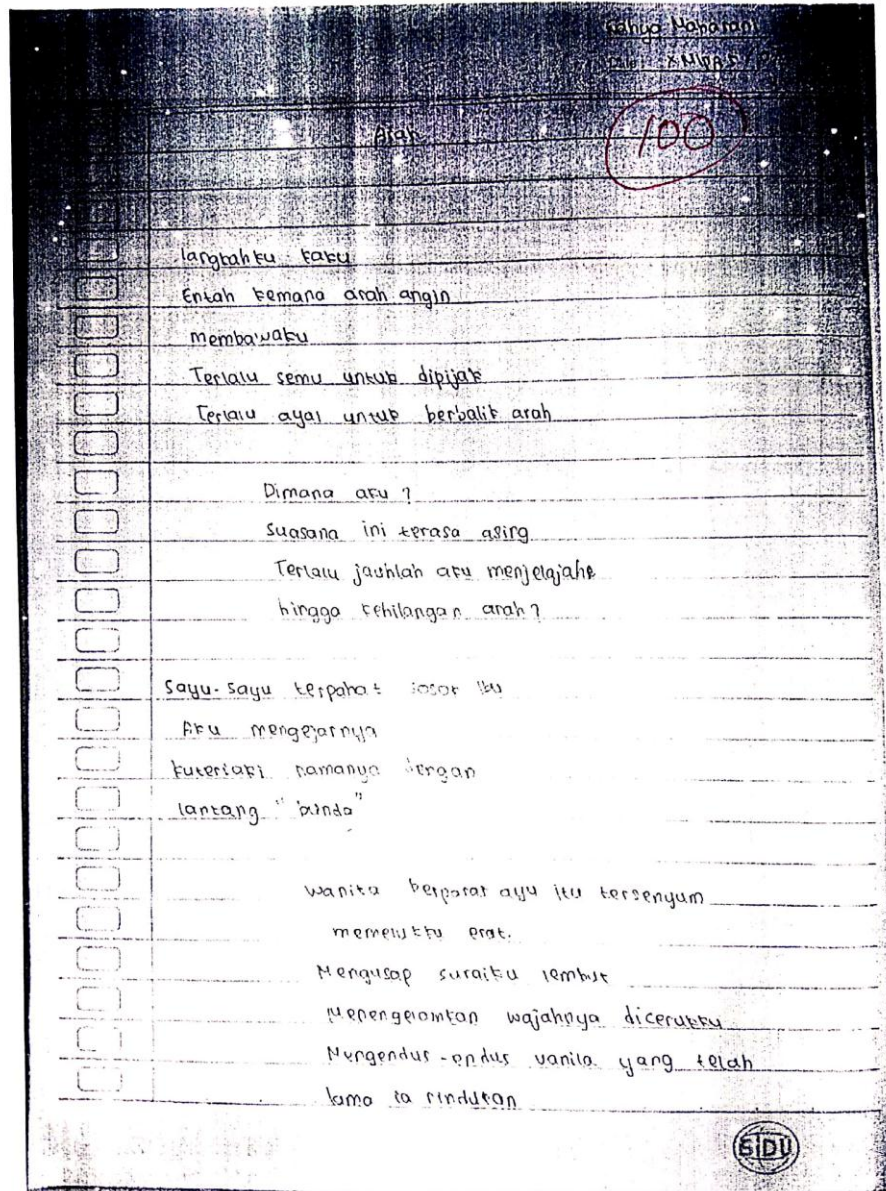 Cahya Maharani
X MIPA 5
Arah
100
langkahku kaku
Entah kemana arah angin
membawaku
Terlalu semu untuk dipijak
Terlalu ayal untuk berbalik arah
Dimana aku ?
suasana ini terasa asing
Terlalu jauhlah aku menjelajah
hingga kehilangan arah ?
Sayu-sayu terpahat sosok ibu
Aku mengejarnya
kuteriaki namanya dengan
lantang "bunda"
Wanita berparas ayu itu tersenyum
memelukku erat.
Mengusap suraiku lembut
Menenggelamkan wajahnya dicerukku
Mengendus-endus vanila yang telah
lama ia rindukan
SIDU